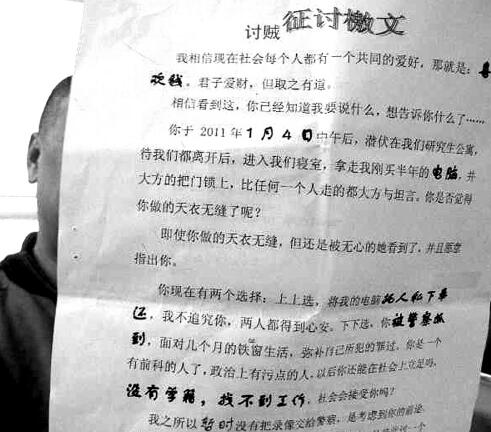 讨贼征讨檄文
我相信现在社会每个人都有一个共同的爱好，那就是：喜
欢钱。君子爱财，但取之有道。
相信看到这，你已经知道我要说什么，想告诉你什么了……
你于 2011 年 1 月 4 日中午后，潜伏在我们研究生公寓，
待我们都离开后，进入我们寝室，拿走我刚买半年的电脑，并
大方的把门锁上，比任何一个人走的都大方与坦言。你是否觉得
你做的天衣无缝了呢？
即使你做的天衣无缝，但还是被无心的她看到了，并且愿意
指出你。
你现在有两个选择：上上选，将我的电脑托人私下奉
还，我不追究你，两人都得到心安。下下选，你被警察抓
到，面对几个月的铁窗生活，弥补自己所犯的罪过。你是一个
有前科的人了，政治上有污点的人，以后你还能在社会上立足吗，
没有学籍，找不到工作，社会会接受你吗？
我之所以暂时没有把录像交给警察，是考虑到你的前途，